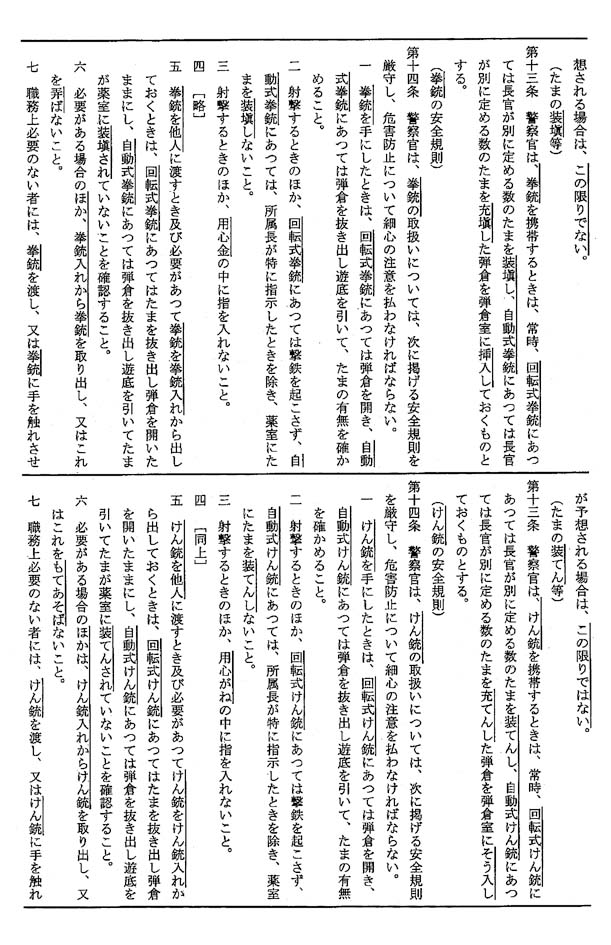 想される場合は、この限りでない。
(たまの装塡等)
第十三条　警察官は、拳銃を携帯するときは、常時、回転式拳銃にあつ
ては長官が別に定める数のたまを装塡し、自動式拳銃にあつては長官
が別に定める数のたまを充塡した弾倉を弾倉室に挿入しておくものと
する。
(拳銃の安全規則)
第十四条　警察官は、拳銃の取扱いについては、次に掲げる安全規則を
厳守し、危害防止について細心の注意を払わなければならない。
一　拳銃を手にしたときは、回転式拳銃にあつては弾倉を開き、自動
式拳銃にあつては弾倉を抜き出し遊底を引いて、たまの有無を確か
めること。
二　射撃するときのほか、回転式拳銃にあつては撃鉄を起こさず、自
動式拳銃にあつては、所属長が特に指示したときを除き、薬室にた
まを装塡しないこと。
三　射撃するときのほか、用心金の中に指を入れないこと。
四　[略]
五　拳銃を他人に渡すとき及び必要があつて拳銃を拳銃入れから出し
ておくときは、回転式拳銃にあつてはたまを抜き出し弾倉を開いた
ままにし、自動式拳銃にあつては弾倉を抜き出し遊底を引いてたま
が薬室に装塡されていないことを確認すること。
六　必要がある場合のほか、拳銃入れから拳銃を取り出し、又はこれ
を弄ばないこと。
七　職務上必要のない者には、拳銃を渡し、又は拳銃に手を触れさせ
が予想される場合は、この限りではない。
(たまの装てん等)
第十三条　警察官は、けん銃を携帯するときは、常時、回転式けん銃に
あつては長官が別に定める数のたまを装てんし、自動式けん銃にあつ
ては長官が別に定める数のたまを充てんした弾倉を弾倉室にそう入し
ておくものとする。
(けん銃の安全規則)
第十四条　警察官は、けん銃の取扱いについては、次に掲げる安全規則
を厳守し、危害防止について細心の注意を払わなければならない。
一　けん銃を手にしたときは、回転式けん銃にあつては弾倉を開き、
自動式けん銃にあつては弾倉を抜き出し遊底を引いて、たまの有無
を確かめること。
二　射撃するときのほか、回転式けん銃にあつては撃鉄を起こさず、
自動式けん銃にあつては、所属長が特に指示したときを除き、薬室
にたまを装てんしないこと。
三　射撃するときのほか、用心がねの中に指を入れないこと。
四　[同上]
五　けん銃を他人に渡すとき及び必要があつてけん銃をけん銃入れか
ら出しておくときは、回転式けん銃にあつてはたまを抜き出し弾倉
を開いたままにし、自動式けん銃にあつては弾倉を抜き出し遊底を
引いてたまが薬室に装てんされていないことを確認すること。
六　必要がある場合のほかは、けん銃入れからけん銃を取り出し、又
はこれをもてあそばないこと。
七　職務上必要のない者には、けん銃を渡し、又はけん銃に手を触れ